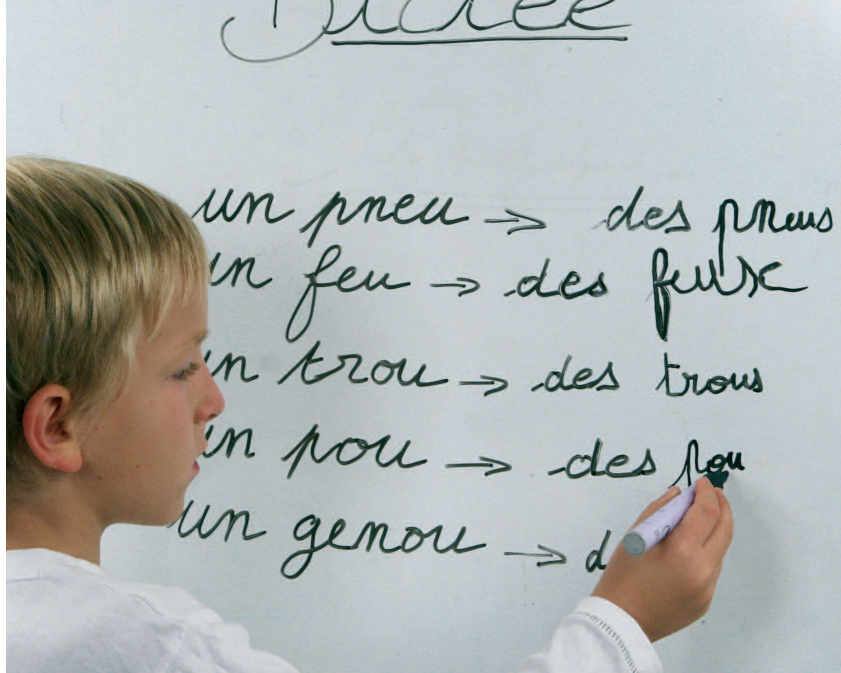 Dictée
un pneu → des pneus
un feu → des feux
un trou → des trous
un pou → des pou
un genou → d